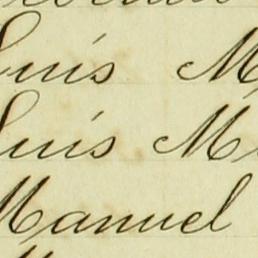 Luis M
Luis M
Manuel